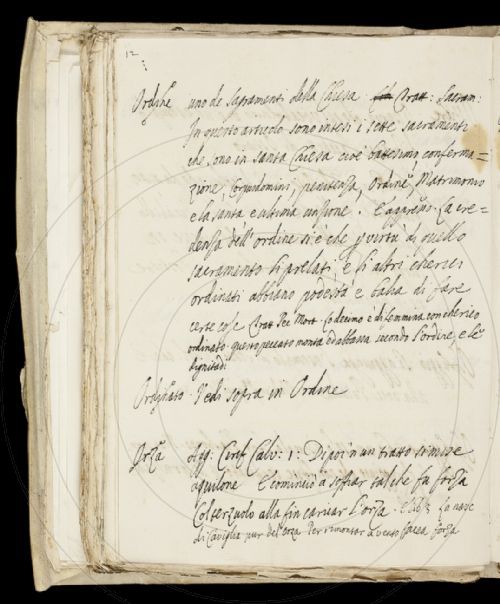 12
Ordine uno de sagramenti della Chiesa Tratt: Sacram:
In questo articolo sono intesi i sette sacramenti
che sono in santa Chiesa cioè battesimo, conferma=
zione, Corpusdomini, penitenza, Ordine, Matrimonio
e la santa e ultima unzione. E appresso. La cre=
denza dell'ordine si è che p virtù di quello
sacramento li prelati e li altri cherici
ordinati abbiano podestà e balia di fare
certe cose Trat Pec Mort. Lo decimo è di femmina con cherico
ordinato. questo peccato monta ed abbassa secondo l'ordine e le
dignitadi
Ordinato. Vedi sopra in Ordine
Orza Cirif Calv: 1: Dipoi 'n un tratto si misse
aquilone E cominciò a soffiar tal che fu forza
Col terzuolo alla fin caricar l'orza. la nave
di Caviglia pur dell'orza Per rimontar a verso facea forza